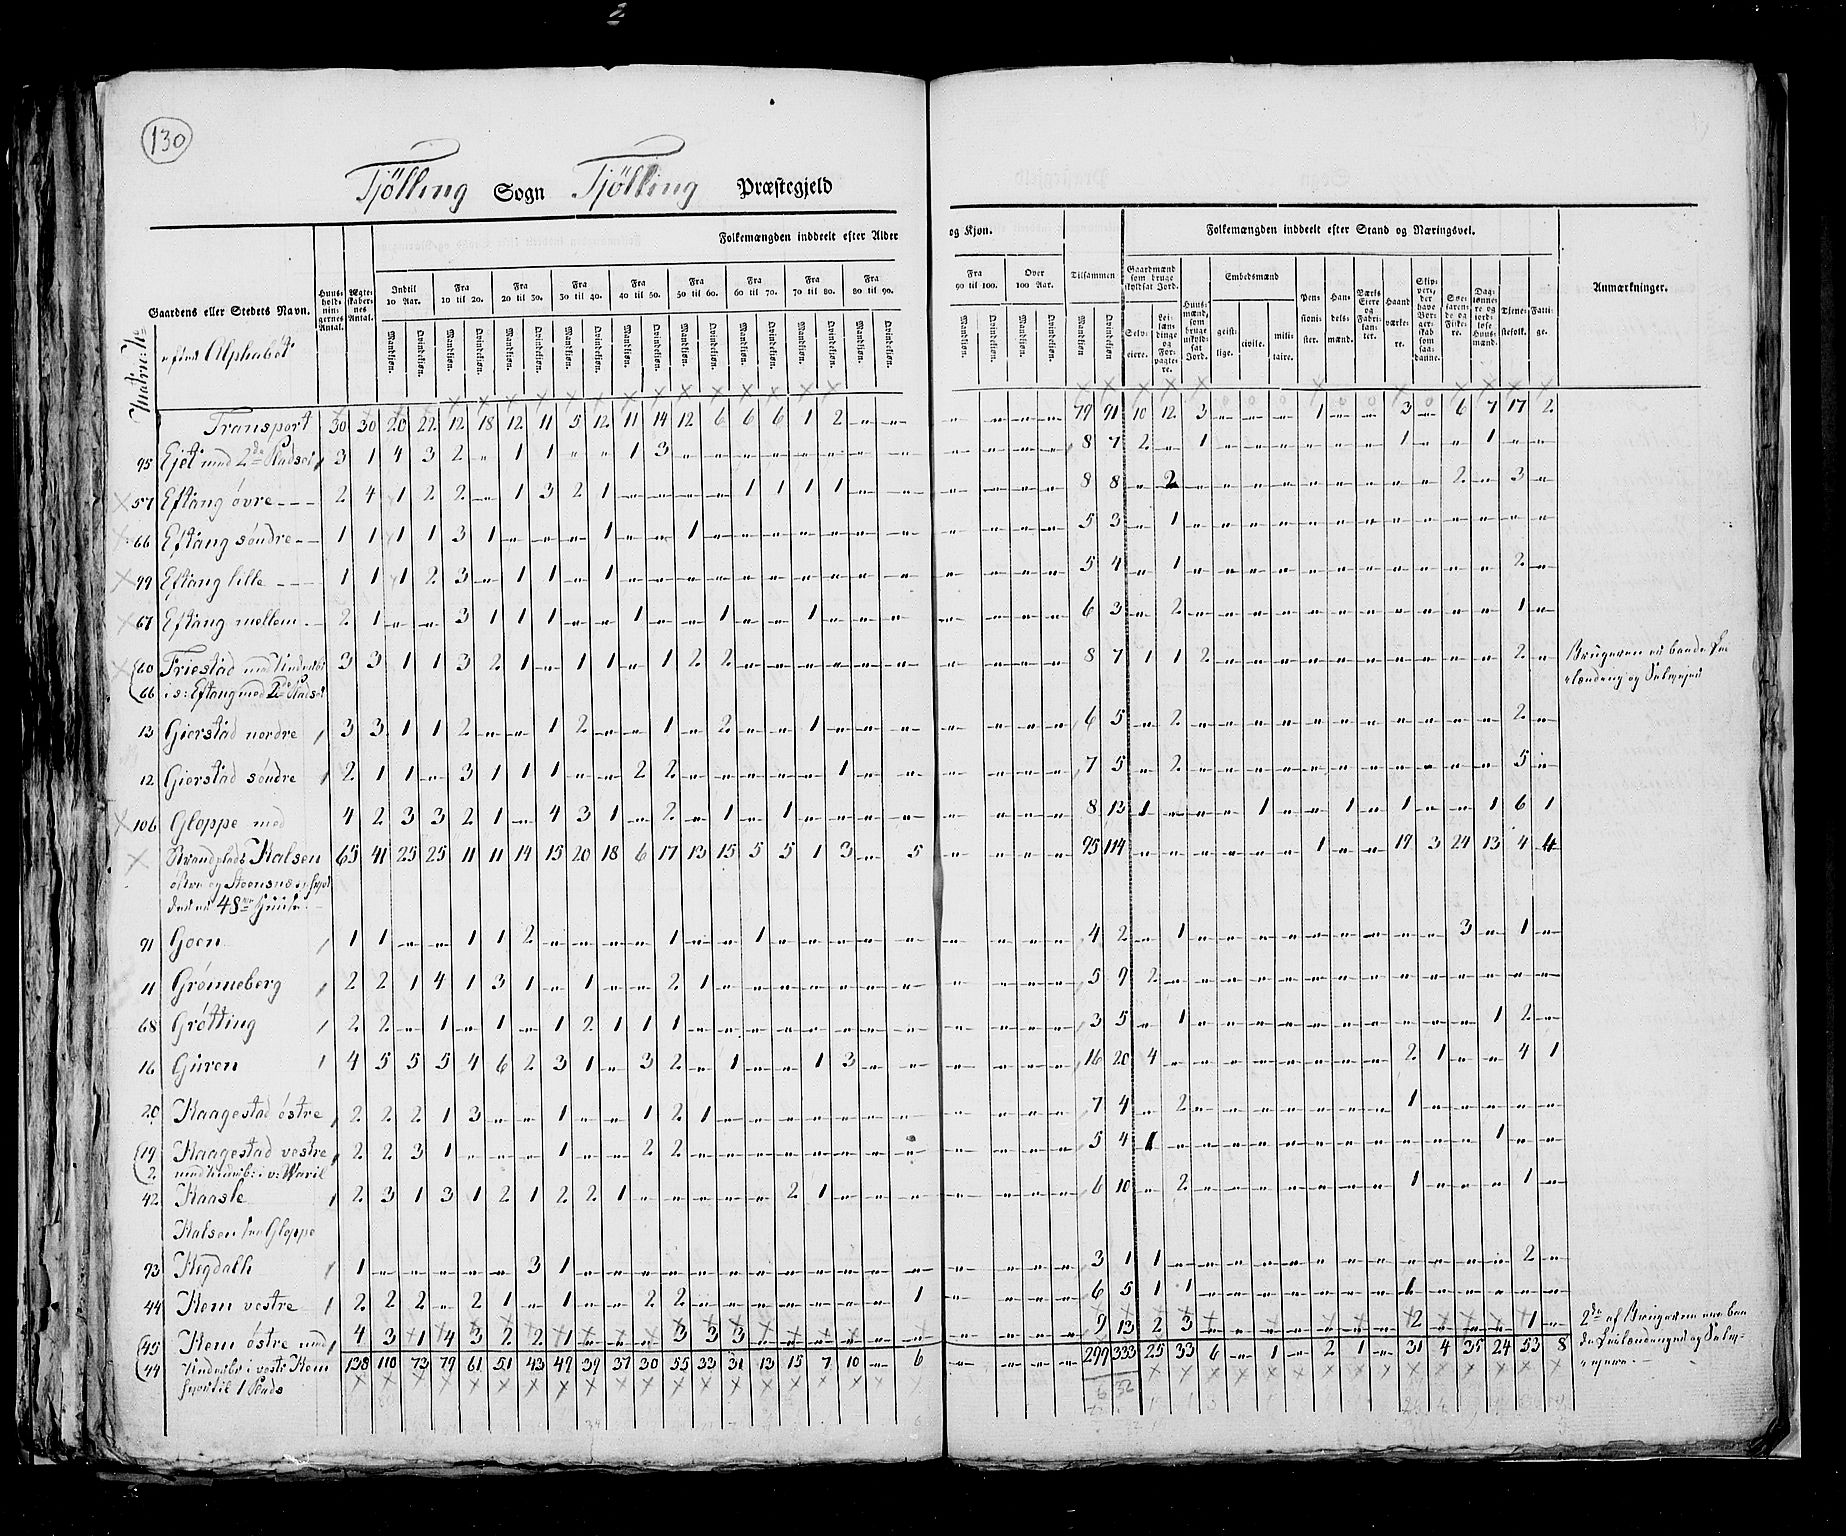 130
Tjölling Sogn Tjölling Præstegjeld
Folkemængden inddeelt efter Alder og Kjøn.
Tilsammen
Folkemængden inddeelt efter Stand og Næringsvei.
Anmærkninger.
Gaardens eller Stedets Navn.
Huusholdningernes Antal.
Ægteskabernes Antal.
Indtil 10 Aar.
Fra 10 til 20.
Fra 20 til 30.
Fra 30 til 40.
Fra 40 til 50.
Fra 50 til 60.
Fra 60 til 70.
Fra 70 til 80.
Fra 80 til 90.
Fra 90 til 100.
Over 100 Aar.
Mandkjøn. Qvindekjøn.
Gaardmænd som bruge skyldsat Jord.
Selveiere.
Leilændinge og Forpagtere.
Huusmænd, som bruge uskyldsat Jord.
Embedsmænd
geistlige. civile. militaire.
Pensionister.
Handelsmænd.
Værks Eiere og Fabrikanter.
Haandværkere.
Skipperi, der have Borgerskab som saadanne.
Søefarende og Fiskere.
Daglønnere og jordløse Huusmænd.
Tjenestefolk.
Fattige.
Transport 30 30 20 22 12 18 12 11 5 12 11 14 12 6 6 6 1 2 „ „ „ „ „ „ 79 91 10 12 3 „ „ „ 1 „ „ 3 „ 6 7 17 2
95 Ejet med 2de Pladser 3 1 4 3 2 „ 1 1 „ „ 1 3 „ „ „ „ „ „ „ „ „ „ „ „ 8 7 2 „ 1 „ „ „ „ „ „ 1 „ „ 1 „ „
57 Eftang övre 2 4 1 2 2 „ 1 3 2 1 „ „ „ „ 1 1 1 1 „ „ „ „ „ „ 8 8 „ 2 „ „ „ „ „ „ „ „ „ 2 „ 3 „
66 Eftang söndre 1 1 1 1 3 1 „ „ „ 1 „ „ 1 „ „ „ „ „ „ „ „ „ „ „ 5 3 „ 1 „ „ „ „ „ „ „ „ „ „ „ „ „
99 Eftang lille 1 1 1 2 3 „ 1 1 „ 1 „ „ „ „ „ „ „ „ „ „ „ „ „ „ 5 4 „ 1 „ „ „ „ „ „ „ „ „ „ „ 2 „
67 Eftang mellem 2 1 „ „ 3 1 1 1 „ „ 1 „ „ 1 „ „ 1 „ „ „ „ „ „ „ 6 3 „ 2 „ „ „ „ „ „ „ „ „ „ „ 1 „
60 Friestad med Underb: 3 3 1 1 3 2 1 „ 1 1 „ 1 2 2 „ „ „ „ „ „ „ „ „ „ 8 7 1 1 2 „ „ „ „ „ „ „ „ „ „ 2 „
66 i s: Eftang med 2de Pladser
13 Gierstad nordre 3 3 1 1 2 „ „ 1 2 „ „ 1 „ 2 „ „ 1 „ „ „ „ „ „ „ 6 5 „ 2 „ „ „ „ „ „ „ „ „ „ „ 2 „
12 Gierstad söndre 2 1 1 „ 3 1 1 1 „ „ 2 2 „ „ „ „ „ 1 „ „ „ „ „ „ 7 5 „ 2 „ „ „ „ „ „ „ „ „ „ „ 5 „
106 Gloppe med 4 2 3 3 2 1 „ 4 3 1 „ 2 „ 1 „ 1 „ „ „ „ „ „ „ „ 8 13 1 „ „ „ 1 „ „ 1 „ 1 „ „ 1 6 1
Strandplads Kalsen 65 41 25 25 11 11 14 15 20 18 6 17 13 15 5 5 1 3 „ 5 „ „ „ „ 95 114 „ „ „ „ „ „ 1 „ „ 19 3 24 13 4 4
48 Huuse
91 Goen 1 1 „ „ 1 1 2 „ „ „ „ 1 „ „ 1 „ „ „ „ „ „ „ „ „ 4 2 „ 1 „ „ „ „ „ „ „ „ „ 3 „ 1 „
11 Grönneberg 2 2 1 4 1 3 1 „ 1 „ „ 2 1 „ „ „ „ „ „ „ „ „ „ „ 5 9 2 „ „ „ „ „ „ „ „ „ „ „ „ „ „
68 Grötting 2 2 „ 1 „ 1 „ 1 2 1 1 1 „ „ „ „ „ „ „ „ „ „ „ „ 3 5 „ 1 „ „ „ „ „ „ „ „ „ „ 1 2 „
16 Guren 4 5 5 5 4 6 2 3 1 „ 3 2 „ 1 „ „ 1 3 „ „ „ „ „ „ 16 20 4 „ „ „ „ „ „ „ „ 2 1 „ „ 4 1
20 Haagestad östre 2 2 2 1 3 „ „ 1 „ „ 1 2 1 „ „ „ „ „ „ „ „ „ „ „ 7 4 „ 2 „ „ „ „ „ „ „ 1 „ „ „ „ „
19 Haagestad vestre 2 2 3 1 „ „ „ 1 „ „ 2 2 „ „ „ „ „ „ „ „ „ „ „ „ 5 4 1 „ „ „ „ „ „ „ „ „ „ „ 1 „ „
2 med Underb: i v: Varil
42 Haasle 2 3 1 3 1 2 1 2 2 1 „ „ „ „ „ 2 1 „ „ „ „ „ „ „ 6 10 „ 2 „ „ „ „ „ „ „ 1 „ „ „ 1 „
Kalsen see Gloppe
93 Hegdahl 1 „ „ „ „ „ 3 1 „ „ „ „ „ „ „ „ „ „ „ „ „ „ „ „ 3 1 1 „ „ „ „ „ „ „ „ „ „ „ „ 2 „
44 Hem vestre 2 2 2 „ 2 1 „ 1 „ „ 2 2 „ „ „ „ „ „ „ 1 „ „ „ „ 6 5 1 1 „ „ „ „ „ „ „ 1 „ „ „ „ „
45 Hem östre med 4 3 1 4 3 2 2 1 „ „ „ 3 3 3 „ „ „ „ „ „ „ „ „ „ 9 13 2 3 „ „ „ „ „ „ „ 2 „ „ „ 1 „
44 Underb: i vestr Hem 138 110 73 79 61 51 43 49 39 37 30 55 33 31 13 15 7 10 „ 6 „ „ „ „ 299 333 25 33 6 „ 1 „ 2 1 „ 31 4 35 24 53 8
1 Plads